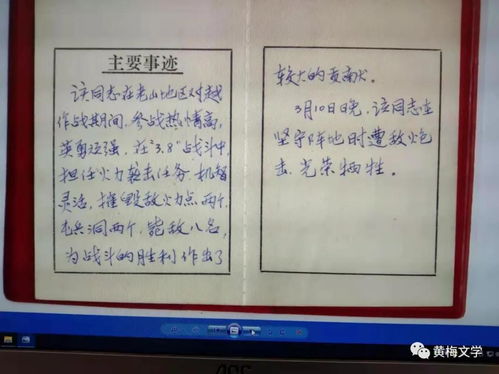 主要事迹
该同志在老山地区对越
作战期间，参战热情高，
英勇顽强，在"3.8"战斗中
担任火力袭击任务，机智
灵活，摧毁敌火力点两个，
屯兵洞两个，毙敌八名，
为战斗的胜利作出了
较大的贡献。
3月10日晚，该同志在
坚守阵地时遭敌炮
击，光荣牺牲。
黄梅文学
AOC